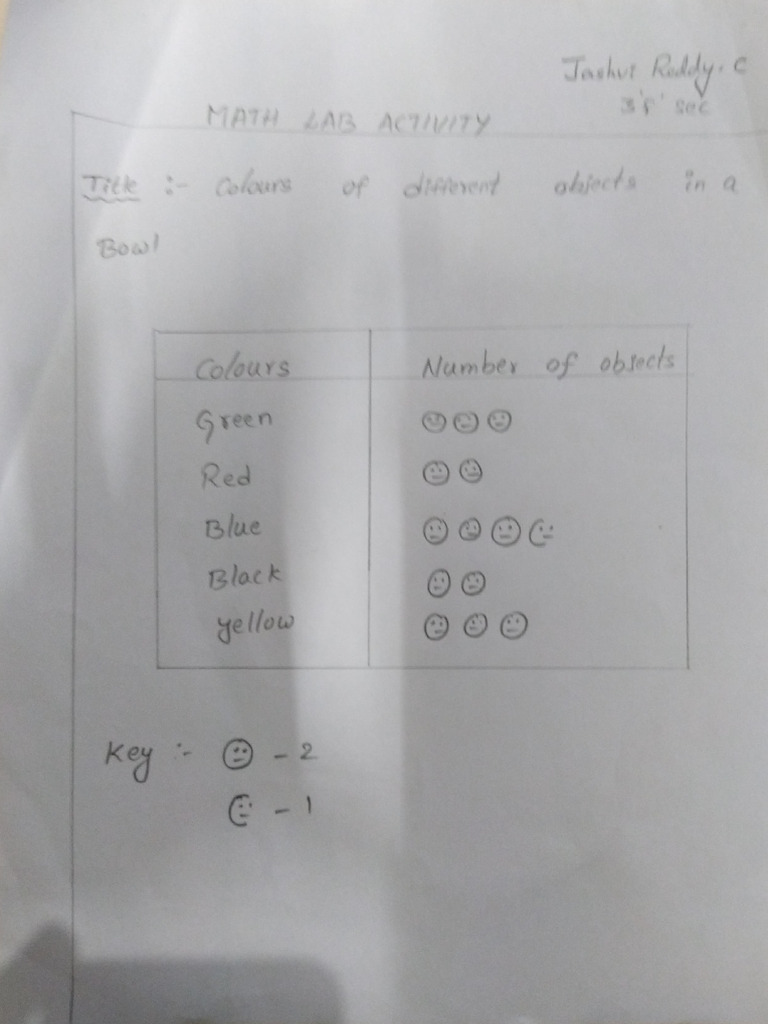 Jashvi Reddy. C
3 'F' sec
MATH LAB ACTIVITY
Title :- Colours of different objects in a
Bowl
Colours Number of objects
Green
Red
Blue
Black
yellow
Key :- - 2
- 1